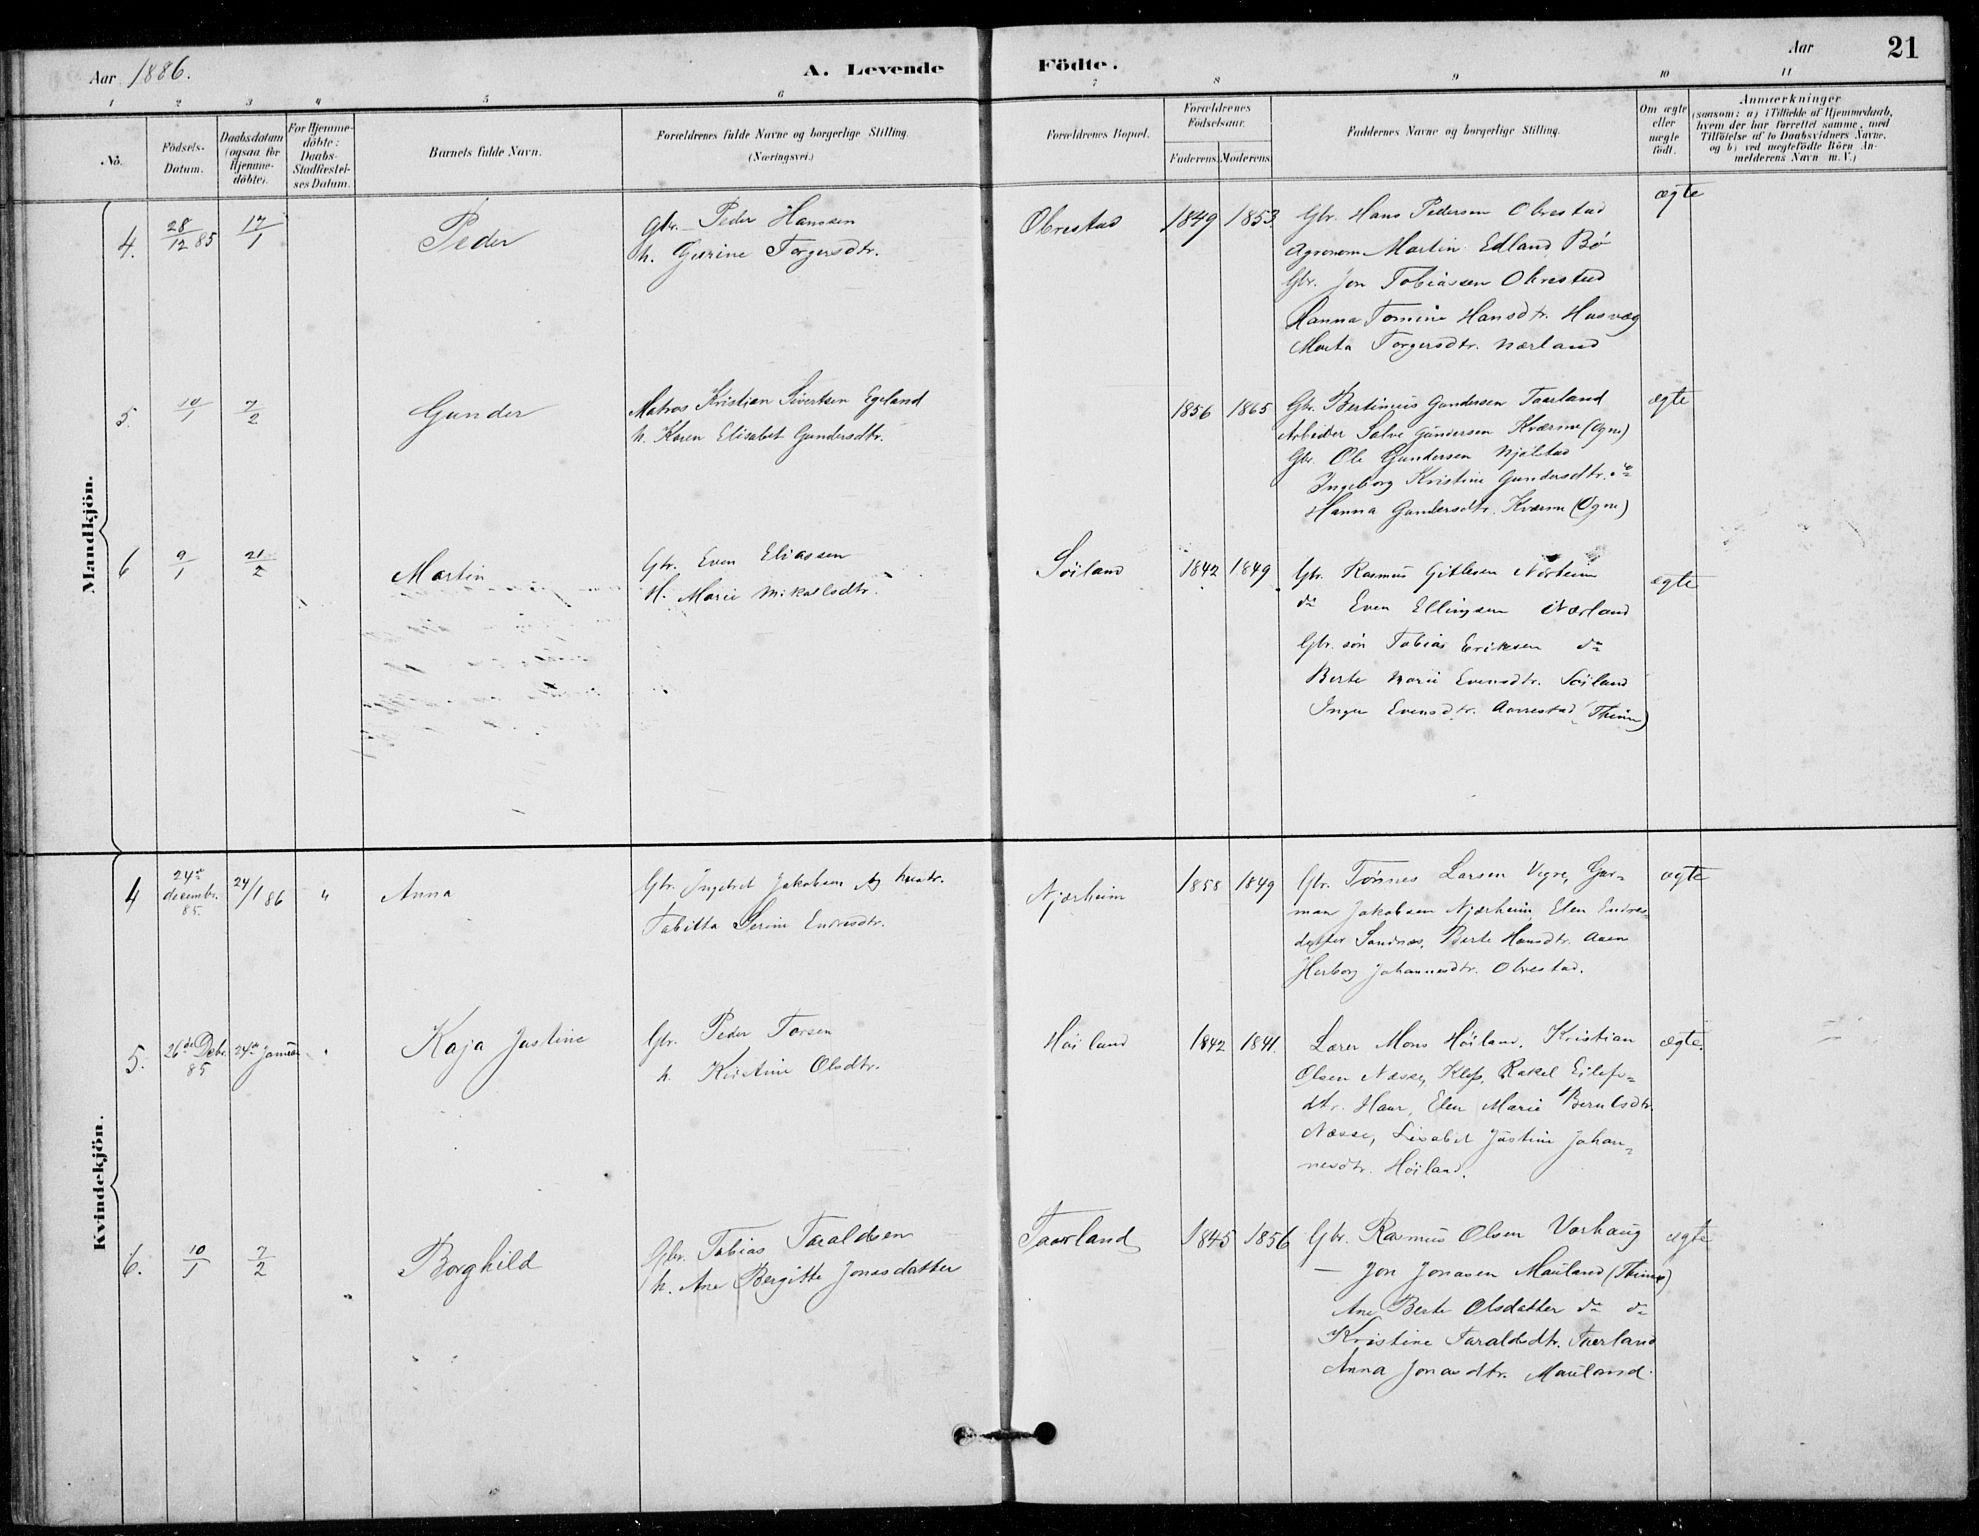 Aar 1886.
A. Levende Födte.
Aar
21
1 2 3 4 5 6 7 8 9 10 11
No.
Födsels-
Datum.
Daabsdatum
(ogsaa for
Hjemme-
döbte).
For Hjemme-
döbte:
Daabs-
Stadfæstel-
ses Datum.
Barnets fulde Navn.
Forældrenes fulde Navne og borgerlige Stilling.
(Næringsvei.)
Forældrenes Bopæl.
Forældrenes
Födselsaar.
Faderens. Moderens.
Faddernes Navne og borgerlige Stilling.
Om ægte
eller
uægte
födt.
Anmærkninger
(saasom: a) i Tilfælde af Hjemmedaab,
hvem der har forrettet samme, med
Tilföielse af to Daabsvidners Navne,
og b) ved uægtefödte Börn An-
melderens Navn m. V.)
Mandkjön.
4. 28/12 85 17/1 Peder
Gbr. Peder Hanssen
h. Gurine Torgersdtr.
Obrestad 1849 1853
Gbr. Hans Pedersen Obrestad
Agronom Martin Edland, Bö
Gbr. Jon Tobiassen Obrestad
Hanna Tomine Hansdtr. Husvæg
Marta Torgersdtr. Nærland
ægte
5. 10/1 7/2 Gunder
Matros Kristian Sivertsen Egeland
h. Karen Elisabet Gundersdtr.
1856 1865
Gbr. Bertinius Gundersen Taarland
Arbeider Salve Gundersen Kværme (Ogne)
Gbr. Ole Gundersen Njølstad
Ingeborg Kristine Gundersdtr. do
Hanna Gundersdtr. Kværme (Ogne)
ægte
6 9/1 21/2 Martin
Gbr. Even Eliassen
H. Marie Mikaelsdtr.
Söiland 1842 1849
Gbr. Rasmus Gitlesen Nörheim
do Even Ellingsen Nærland
Gbr. sön Tobias Eriksen do
Berte Marie Evensdtr. Söiland
Inger Evensdtr. Aarrestad (Thime)
ægte
Kvindekjön.
4 24de decembr. 85. 24/1 86 " Anna
Gbr. Ingebret Jakobsen og hustr.
Tabitta Serine Endresdtr.
Njærheim 1858 1849
Gbr. Tönnes Larsen Vigre, Gur-
man Jakobsen Njærheim, Elen Endres-
datter Sandnæs, Berte Hansdtr. Aaen
Herborg Johannesdtr. Obrestad.
ægte
5. 26de Decbr. 85 24de Januar " Kaja Justine
Gbr. Peder Torsen
h. Kristine Olsdtr.
Höiland 1842 1841.
Lærer Mons Höiland, Kristian
Olsen Næsse, Klep, Rakel Eilefs-
dtr. Haar, Elen Marie Berntsdtr.
Næsse, Lisabet Justine Johan-
nesdtr. Höiland.
ægte.
6. 10/1 7/2 Borghild
Gbr. Tobias Taraldsen
h. Ane Bergitte Jonasdatter
Taarland 1845 1856
Gbr. Rasmus Olsen Varhaug
— Jon Jonasen Mauland (Thime)
Ane Berte Olsdatter do do
Kristine Taraldsdtr. Taarland
Anna Jonasdtr. Mauland.
ægte